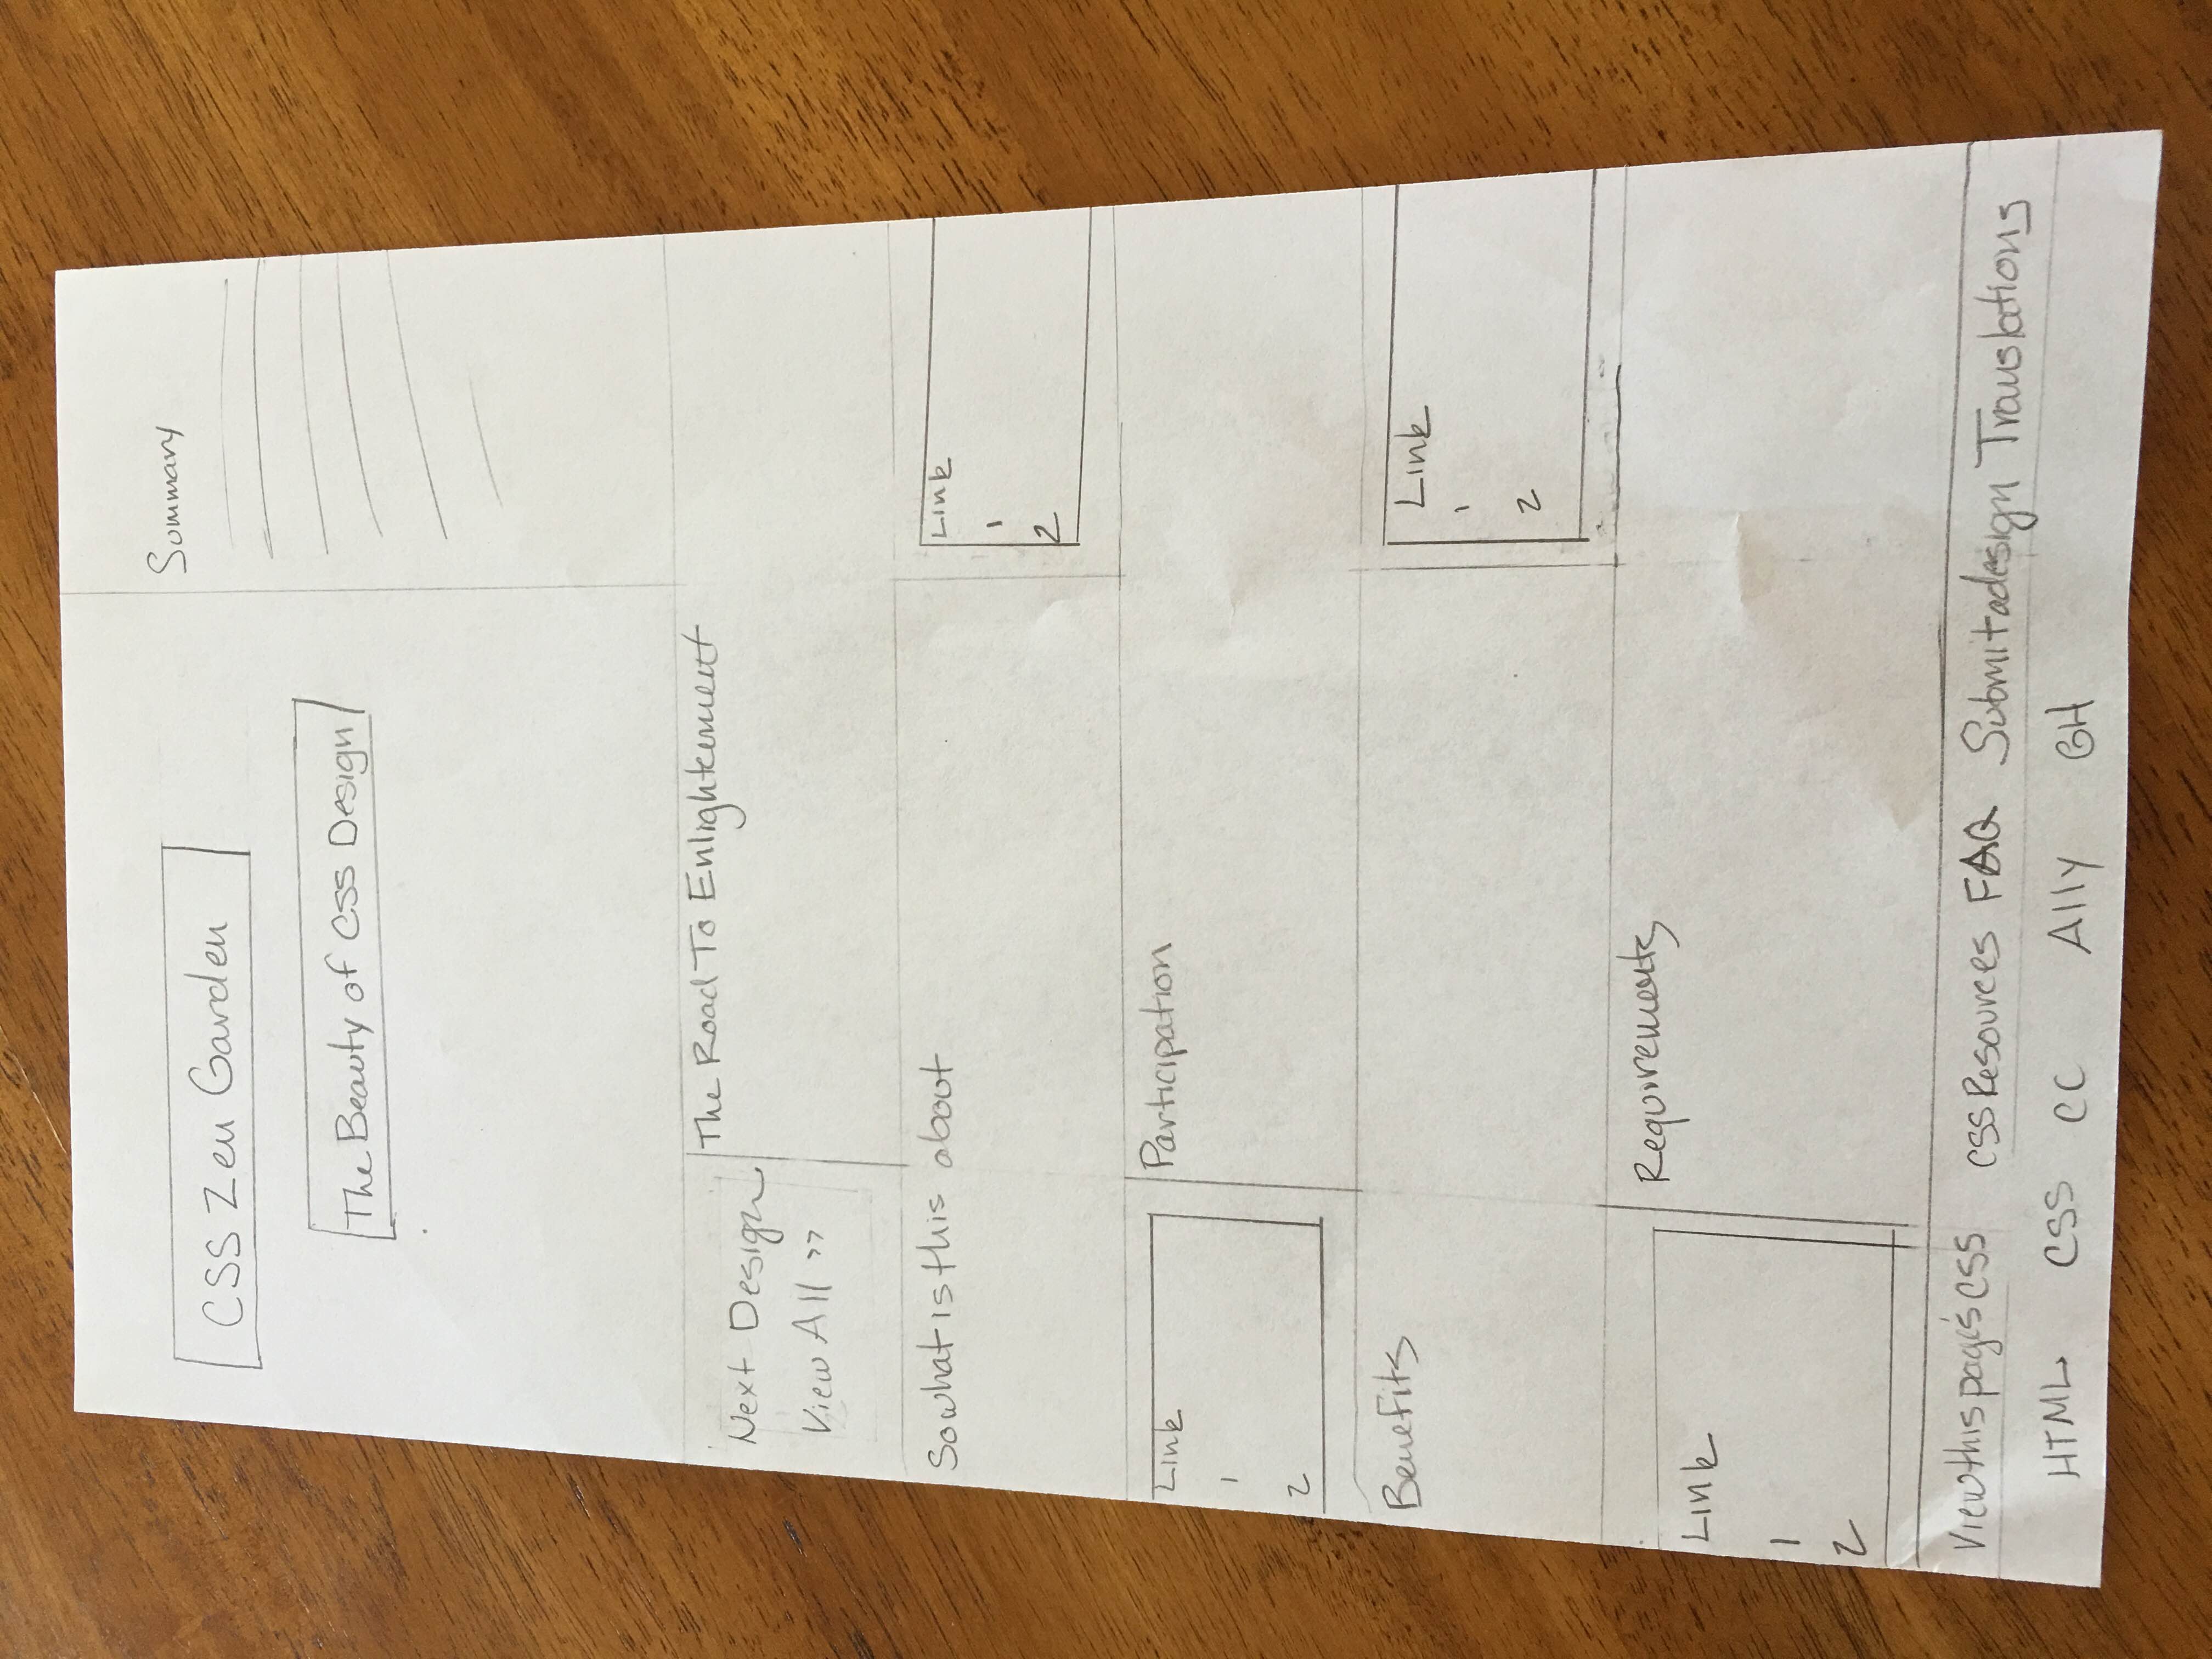 CSS Zen Garden
The Beauty of CSS Design
Summary
Next Design
View All >>
The Road To Enlightenment
So what is this about
Link
1
2
Link
1
2
Participation
Benefits
Link
1
2
Link
1
2
Requirements
View this page's CSS CSS Resources FAQ Submit a design Translations
HTML CSS CC A11y GH